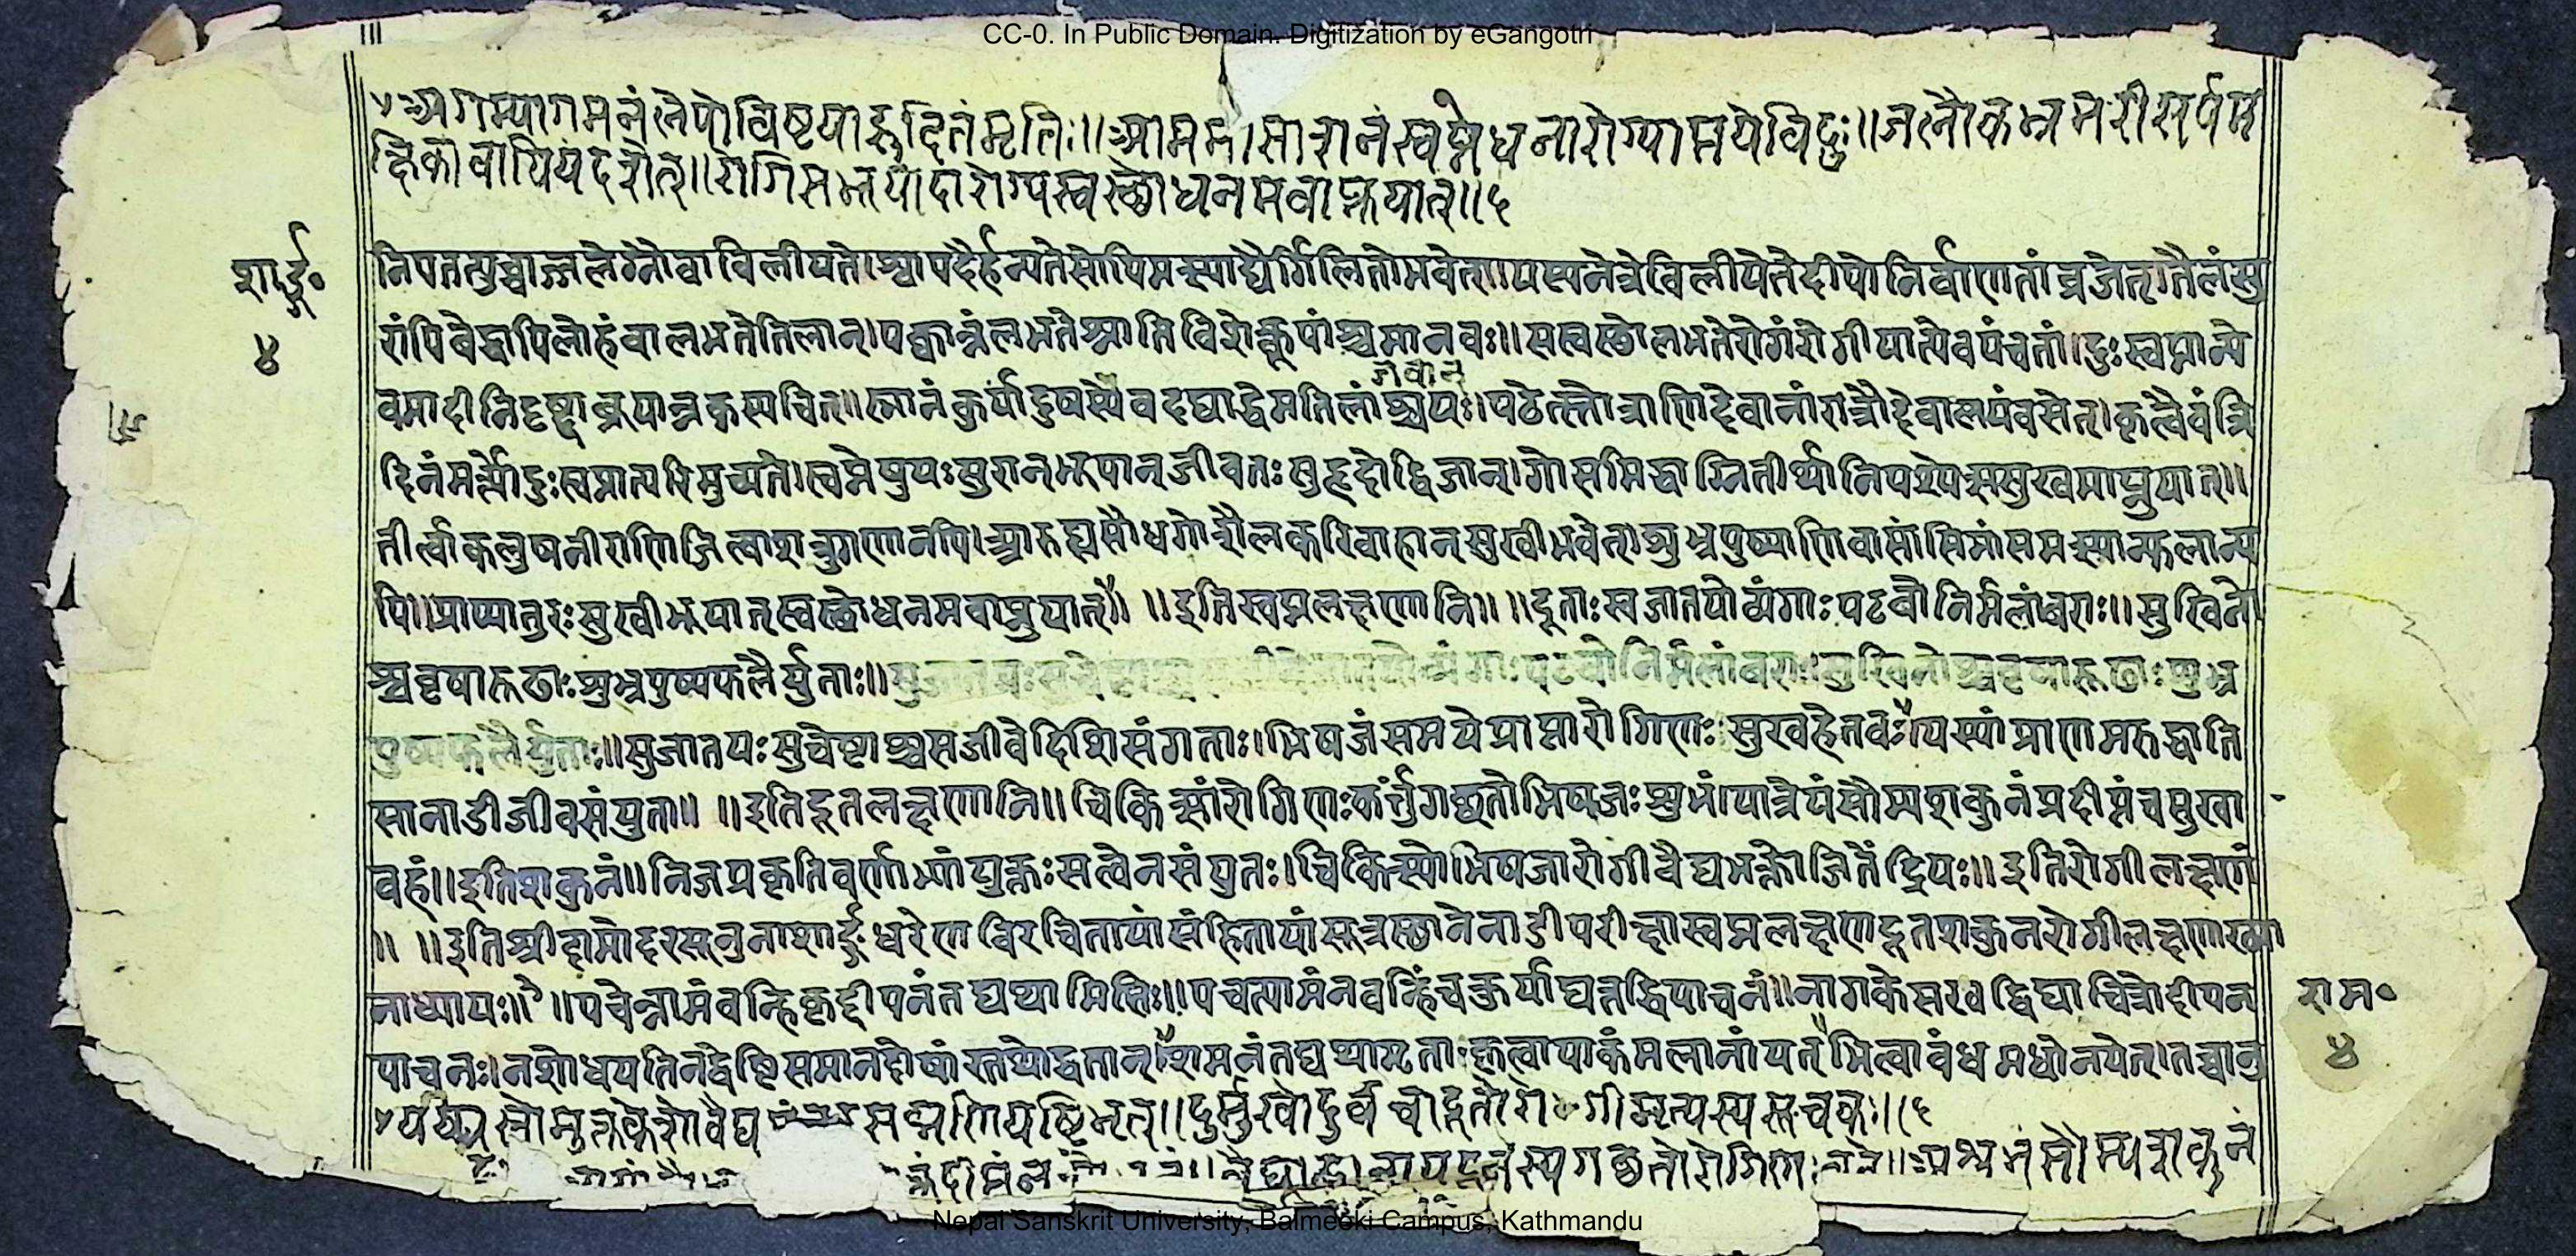 CC-0. In Public Domain. Digitization by eGangotri
अगम्यागमनं लेपो विष्टया रुदितं मृतिः॥ आममांसाशनं स्वप्ने धनारोग्याप्तये विदुः॥ जलौका भ्रमरी सर्पम
क्षिका वापि यं दशेत्॥ रोगी स भूयादारोग्य स्वस्थो धनमवाप्नुयात्॥ ५
शार्ङ्ग॰
४
निपतत्युच्चाज्जलेग्नौ वा विलीयते। श्वापदैर्हन्यते सोपि मत्स्याद्यैर्गिलितो भवेत्॥ यस्य नेत्रे विलीयेते दीपो निर्वाणतां व्रजेत्। तैलं सु
रां पिबेद्वापि लोहं वा लभते तिलान्। पक्वान्नं लभतेश्नाति विशेत्कूपं
श्च मानवः॥ स स्वस्थो लभते रोगं रोगी यात्येव पंचतां॥ दुःस्वप्नान्ये
वमादीनि दृष्ट्वा ब्रूयान्न कस्यचित्॥ स्नानं कुर्यादुषस्येव दद्याद्धेमतिलां पठेत्स्तोत्राणि देवानां रात्रौ देवालयं वसेत्। कृत्वैवं त्रि
दिनं मर्त्यो दुःस्वप्नात्परिमुच्यते। स्वप्ने पुयः सुरान् भूपान् जीवतः सुहृदो द्विजान्। गोसमिद्धाग्नितीर्थानि पश्येत्स सुखमाप्नुयात्॥
तीर्त्वा कलुषनीराणि जित्वा शत्रुगणानपि। आरुह्य सौधगोशैलकरिवाहान् सुखी भवेत्। शुभ्रपुष्पाणि वासांसि मांसमत्स्यान्फलान्य
पि॥ प्राप्यातुरः सुखी भूयात् स्वस्थो धनमवाप्नुयात्॥ ॥ इति स्वप्नलक्षणानि॥ ॥ दूताः स्वजातयो व्यंगाः पटवो निर्मलांबराः॥ सुखिनो
श्ववृषारूढाः शुभ्रपुष्पफलैर्युताः॥ पटवो निर्मलांबराः सुखिनोश्ववृषारूढाः शुभ्र
पुष्पफलैर्युताः॥ सुजातयः सुचेष्टाश्च सजीवे दिशि संगताः। भिषजं समये प्राप्ता रोगिणः सुखहेतवः। यस्यां प्राणमरुद्वाति
सा नाडी जीवसंयुता॥ ॥ इति दूतलक्षणानि॥ चिकित्सां रोगिणः कर्त्तुं गच्छतो भिषजः शुभं। यात्रेयं सौम्यशकुनं प्रदीप्तं च सुखा
वहं॥ इति शकुनं॥ निजप्रकृतिवर्णाभ्यां युक्तः सत्वेन संयुतः। चिकित्स्यो भिषजा रोगी वैद्यभक्तो जितेंद्रियः॥ इति रोगीलक्षणं
॥ ॥ इति श्रीदामोदरसूनुना शार्ङ्गधरेण विरचितायां संहितायां सूत्रस्थाने नाडीपरीक्षास्वप्नलक्षणदूतशकुनरोगीलक्षणाख्या
नाध्यायः॥ ॥ पचेन्नामं वन्हिकृद्दीपनं तद्यथा मिसिः॥ पचत्यामं न वन्हिं च कुर्याद्यत्तद्धि पाचनं॥ नागकेसरवद्विद्याच्चित्रो दीपन
राम॰
पाचनः। न शोधयति न द्वेष्टि समान् दोषांस्तथोद्धतान्। शमनं तद्यथामृता कृत्वा पाकं मलानां यत् भित्वा बंधमधो नयेत्। तच्चानु
४
दुर्मुखो दुर्वचो दूतो रोगी मृत्यस्य सूचकः॥ ६
वैद्याह्वानाय दूतस्य गच्छतो रोगिणः
Nepal Sanskrit University, Balmeeki Campus, Kathmandu